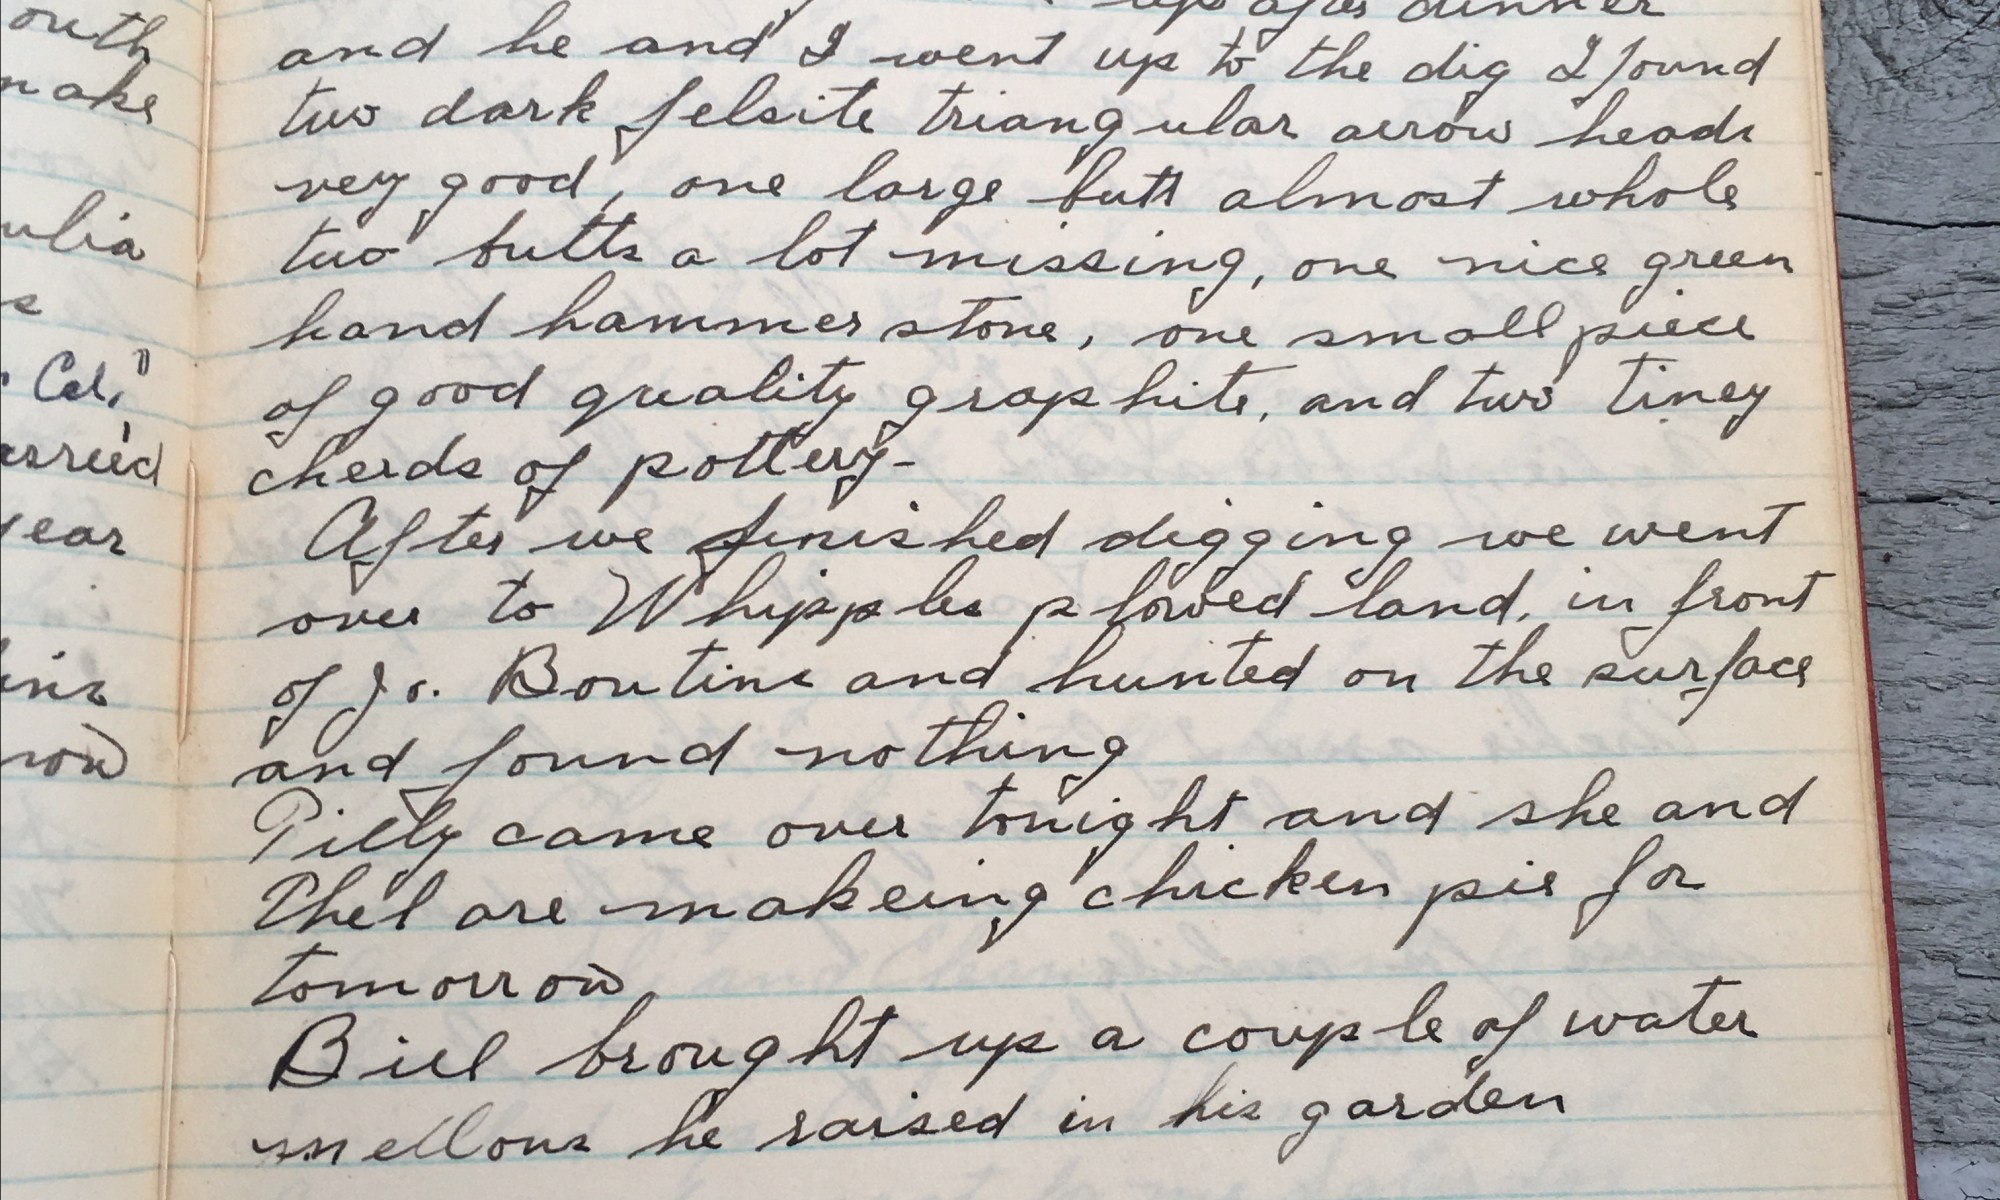 outh
make
ulia
s
Col."
year
row
up after dinner
and he and I went up to the dig I found
two dark felsite triangular arrow heads
very good, one large butt almost whole
two butts a lot missing, one nice green
hand hammer stone, one small piece
of good quality graphite, and two tiney
cherds of pottery-
After we finished digging we went
over to Whipples plowed land, in front
of Jo. Boutins and hunted on the surface
and found nothing
came over tonight and she and
Phel are makeing chicken pie for
tomorrow
Bill brought up a couple of water
mellons he raised in his garden